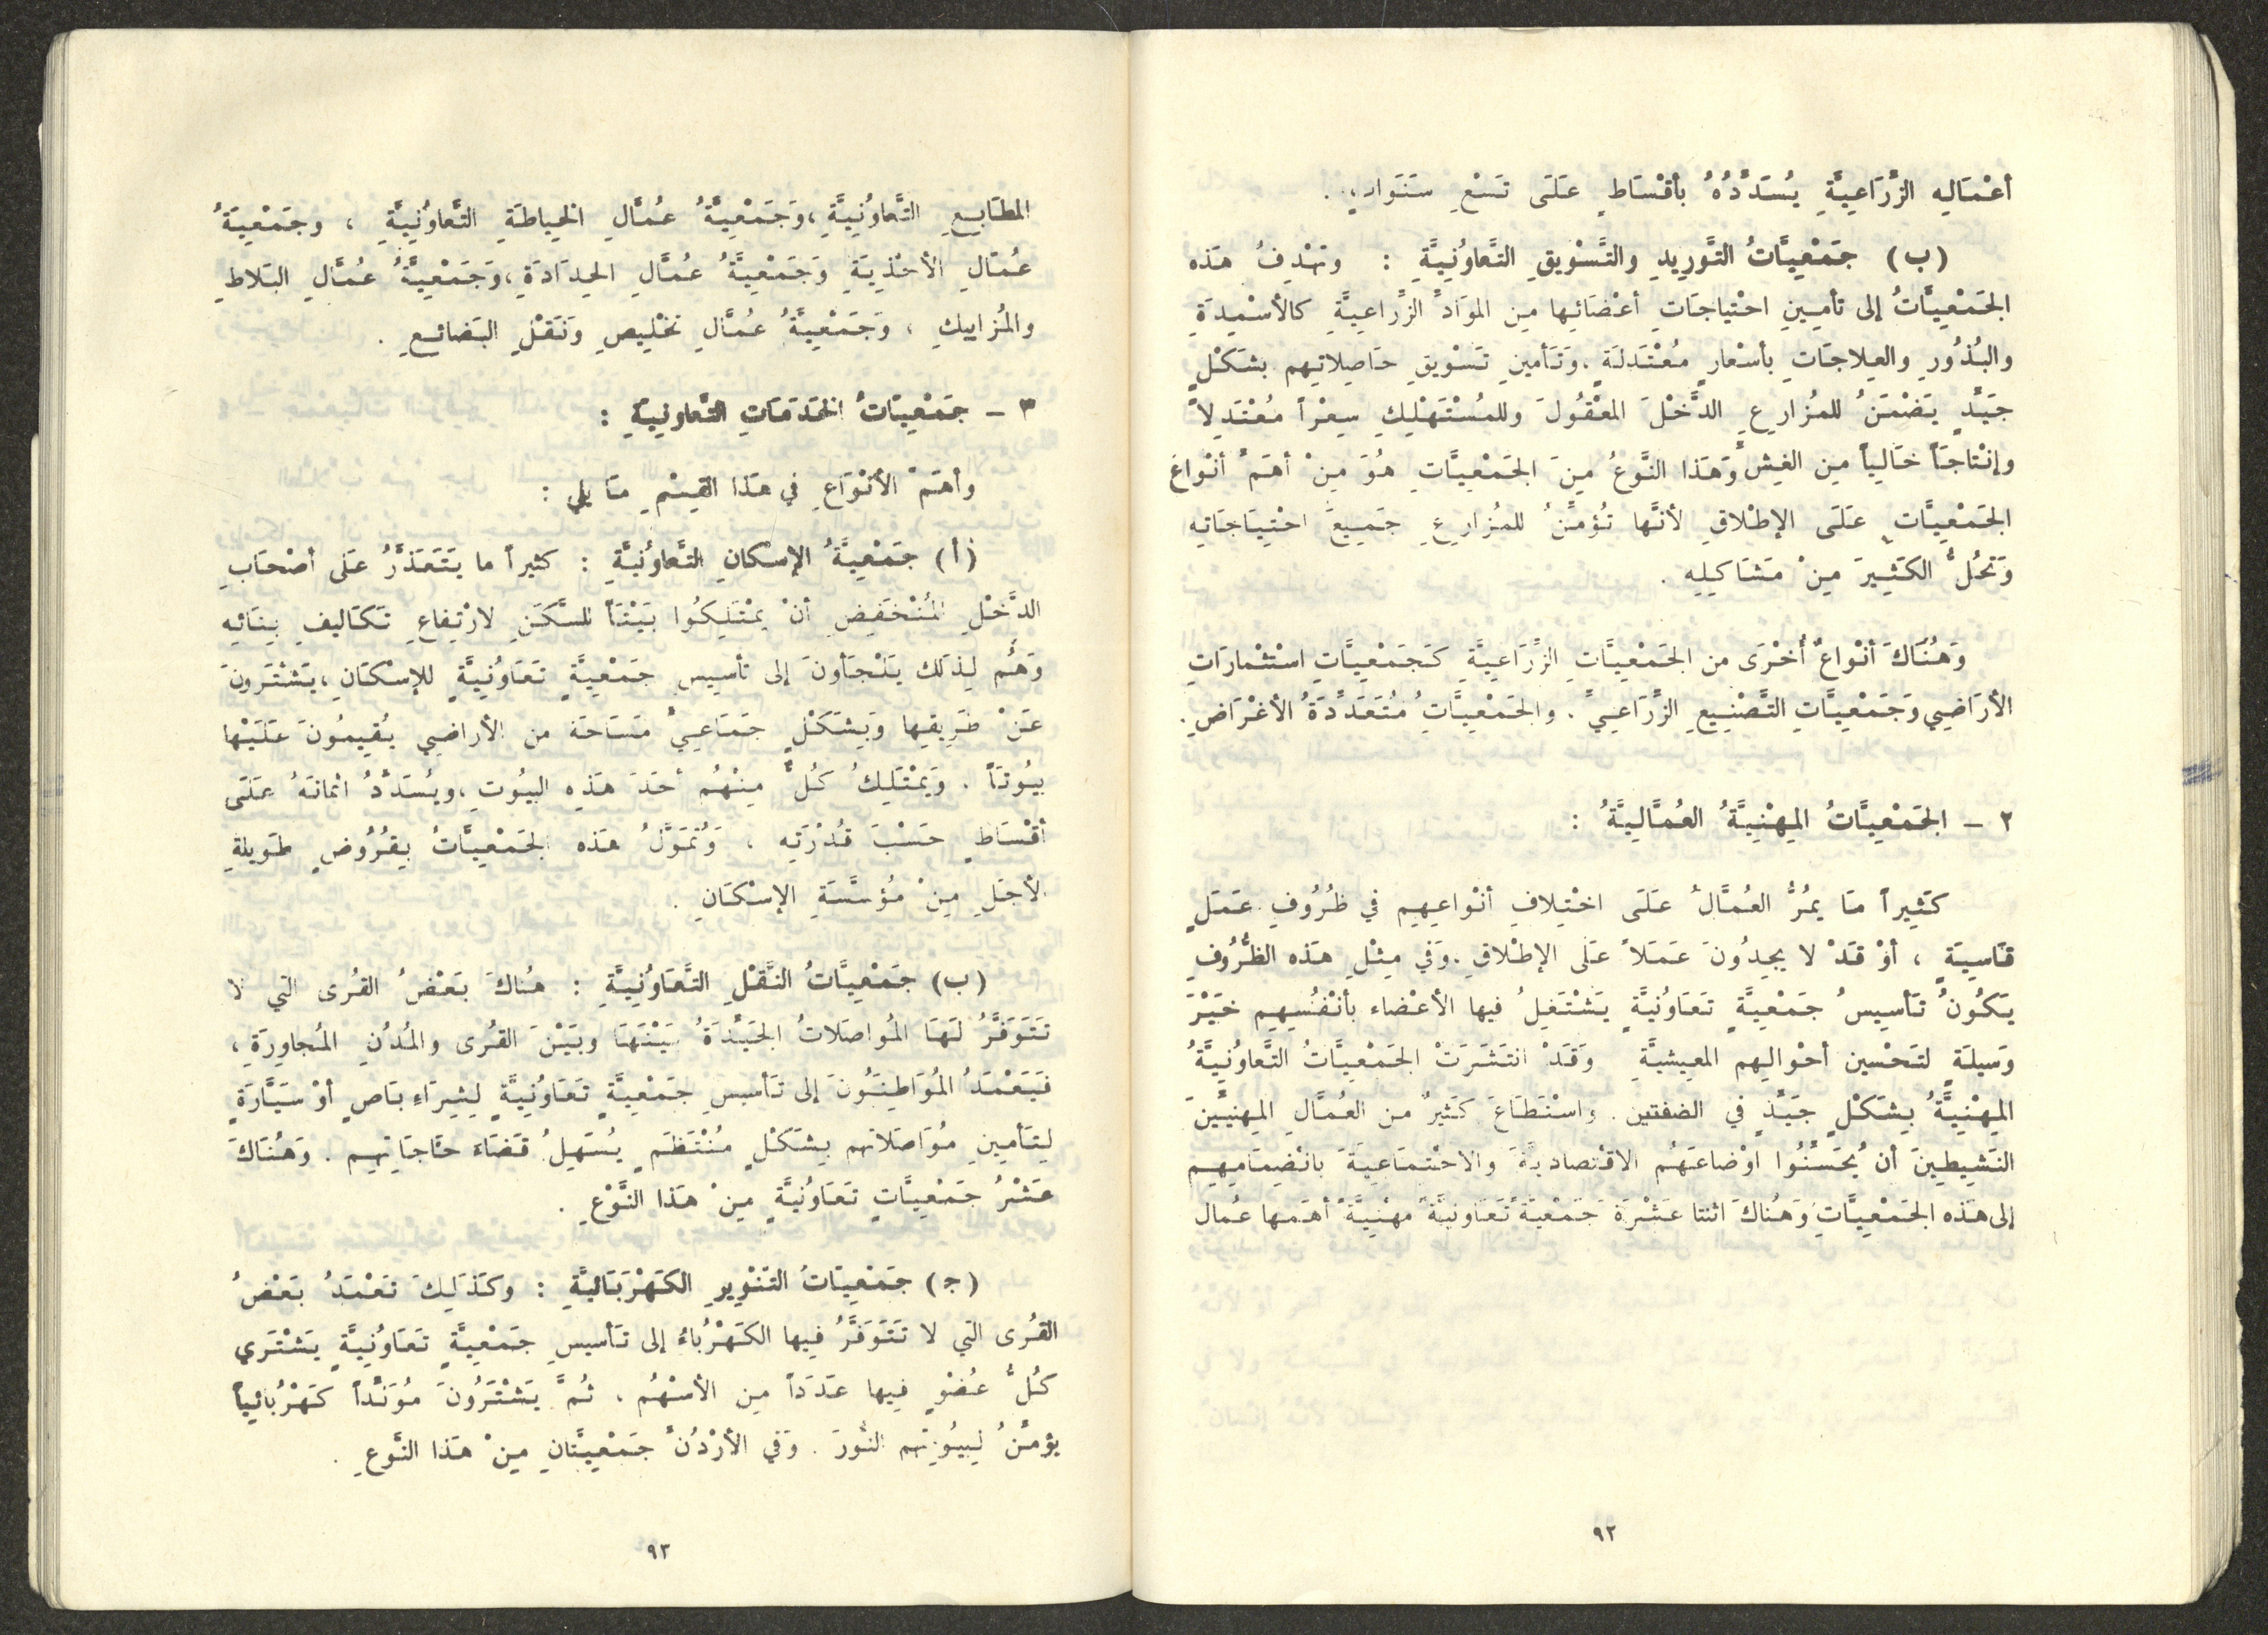 أعْمَالِه الزَّرَاعِيَّةِ يُسَدَّدُهُ بأقْسَاطٍ عَلَى تَسْعِ سَنَوات.
(ب) جَمْعِيَّاتُ التَّوريدِ والتَّسْويقِ التَّعَاوُنِيَّةِ : وتَهْدِفُ هَذه
الجَمْعِيَّاتُ إلى تأمِينِ احْتياجَاتِ أعْضَائِها مِن الموَادَّ الزَّراعِيَّةِ كالأسْمِدَةِ
والبُذُورِ والعِلاجَاتِ بأسْعارٍ مُعْتَدلَةٍ . وَتَأمينِ تَسْويقِ حَاصِلاتِهم بشَكْلٍ
جَيَّدٍ يَضْمَنُ للمُزارِعِ الدَّخْلَ المعْقُولَ وللمُسْتَهْلِكِ سِعْراً مُعْتَدِلاً
وإنْتاجَاً خَالِياً مِن الغِش وَهَذا النَّوعُ مِنَ الجَمْعِيَّاتِ هُوَ مِنْ أهَمَّ أنْواعَ
الجَمْعِيَّاتِ عَلَى الإطْلاقِ لأنَّها تُؤمَّنُ للمُزارِعِ جَمِيعَ احْتِيَاجَاتِه
وَتَحُلُّ الكَثِيرَ مِنْ مَشَاكِيلِهِ .
وَهُنَاكَ أنْواعٌ أُخْرَى من الجَمْعِيَّاتِ الزَّرَاعِيَّةِ كَجَمْعِيَّاتِ اسْتثْمارَاتِ
الأرَاضِي وَجَمْعِيَّاتِ التَّصْنِيعِ الزَّرَاعِيَّ . والجَمْعِيَّاتِ مُتَعَدَّدَةُ الأغْرَاضِ .
٢ ـ الجَمْعِيَّاتُ المِهْنِيَّةُ العُمَّالِيَّةُ :
كَثِيراً مَا يمُرُّ العُمَّالُ عَلَى اخْتِلافِ أنْواعِهِم في ظُرُوفِ عَمَلٍ
قَاسِيَةٍ ، أوْ قَدْ لا يجِدُونَ عَمَلاً عَلَى الإطْلاقِ . وَفي مِثْلِ هَذه الظُّرُوفِ
يَكُونُ تَأسِيسُ جَمْعِيَّةٍ تَعَاوُنِيَّةٍ يَشْتَغِلُ فيها الأعْضاء بأنْفُسِهِم خَيْرَ
وَسيلَةٍ لتَحْسين أحْوالِهم المعِيشيَّةِ وَقَدْ انتَشَرَتْ الجَمْعِيَّاتُ التَّعاوُنِيَّةُ
المِهْنِيَّةُ بِشَكْلٍ جَيَّدٍ في الضفتين . واسْتَطَاعَ كَثيرٌ من العُمَّالِ المِهنيَّينَ
النَشِيطِينَ أن يُحَسَّنُوا اوْضاعَهُم الاقْتصاديَّةَ والاجْتمَاعِيَةَ بانْضِمَامِهِم
إلى هَذه الجَمْعِيَّاتِ وَهُنَاكَ اثنتا عَشْرَةَ جَمْعِيَةً تَعَاونيَةً مهْنِيَّةً أهَمها عُمال
٩٢
المطَابِعِ التَّعاوُنِيَّةِ ، وَجَمْعِيَّةُ عُمَّالِ الخِياطَةِ التَّعاوُنِيَّةِ ، وجَمْعِيَةُ
عُمَّالِ الأحْذِيَةِ وَجَمْعِيَّةُ عُمَّالِ الحِدَادَةِ ، وَجَمْعِيَّةُ عُمَّالِ البَلاطِ
والمُزاييكِ ، وَجَمْعِيَّةُ عُمَّالِ تخْلِيصِ وَنَقْلِ البَضائِعِ .
٣ ـ جَمْعِيَاتُ الخَدَمَاتِ التَّعاونِيةِ :
وأهَمْ الأنْوَاعِ في هَذا القِسْمِ مَا يلي :
(أ) جَمْعِيَّةُ الإسْكَانِ التَّعاوُنِيَّةِ : كثيراً ما يَتَعَذَّرُ عَلَى أصْحَابِ
الدَّخْلِ المُنْخَفِضِ أنْ يمْتَلِكُوا بَيْتَاً للسَّكَنِ لارْتِفاعِ تَكَاليفِ بِنَائِه
وَهُم لِذلَك يَلْجَأونَ إلى تأسِيسِ جَمْعِيَّةٍ تَعَاوُنِيَّةٍ للإسْكَانِ ، يَشْتَرونَ
عَنْ طَرِيقِها وَبِشَكْلٍ جَمَاعِيٍّ مَسَاحَة من الأراضِي يُقِيمُونَ عَلَيْها
بيُوتَاً . وَيمْتَلِكُ كُلٌّ مِنْهُم أحَدَ هَذِه البيُوتِ ، ويُسَدَّدُ اثمانَهُ عَلَى
أقْسَاطٍ حَسْبَ قُدْرَتِه ، وَتُمَوَّلُ هَذه الجَمْعِيَّاتُ بِقُرُوضٍ طَويلةِ
الأجَلِ مِنْ مُؤسَّسَةِ الإسْكَانِ .
(ب) جَمْعِيَّاتُ النَّقْلِ التَّعَاوُنِيَّةِ : هُناكَ بَعْضُ القُرى التي لا
تَتَوَفَّرُ لَهَا المُواصَلاتُ الجَيَّدَةُ بَيْنَهَا وبَيْنَ القُرى والمُدُنِ المُجاوِرَةِ ،
فَيَعْمَدُ المُوَاطِنَوُنَ إلى تَأسيسِ جَمْعِيَّةٍ تَعَاوُنِيَّةٍ لِشِرَاءِ بَاصٍ أوْ سَيَّارَةٍ
لِتَأمِينِ مُوَاصَلاتِهم بِشَكْلٍ مُنْتَظَمٍ يُسَهِلُ قَضَاءَ حَاجَاتِهِم . وَهُنَاكَ
عَشْرُ جَمْعِيَّاتٍ تَعَاوُنِيَّةٍ مِنْ هَذا النَّوْعِ .
(ج) جَمْعِيَاتُ التَنْوِيرِ الكَهْرَبَائِيَّةِ : وكَذَلِكَ تَعْمَدُ بَعْضُ
القُرى التي لا تَتَوَفَّرُ فِيها الكَهْرُباءُ إلى تَأسيسِ جَمْعِيَّةٍ تَعَاوُنِيَّةٍ يَشْتَري
كُلُّ عُضْوٍ فِيها عَدَدَاً مِن الأسْهُم ، ثُمَّ يَشْتَرُونَ مُوَلَّدَاً كَهْرُبائياً
يؤمَّنُ لِبيُوتِهم النُّورَ . وَفي الأرْدُنَّ جَمْعِيَّتَانِ مِنْ هَذا النَّوعِ .
٩٣